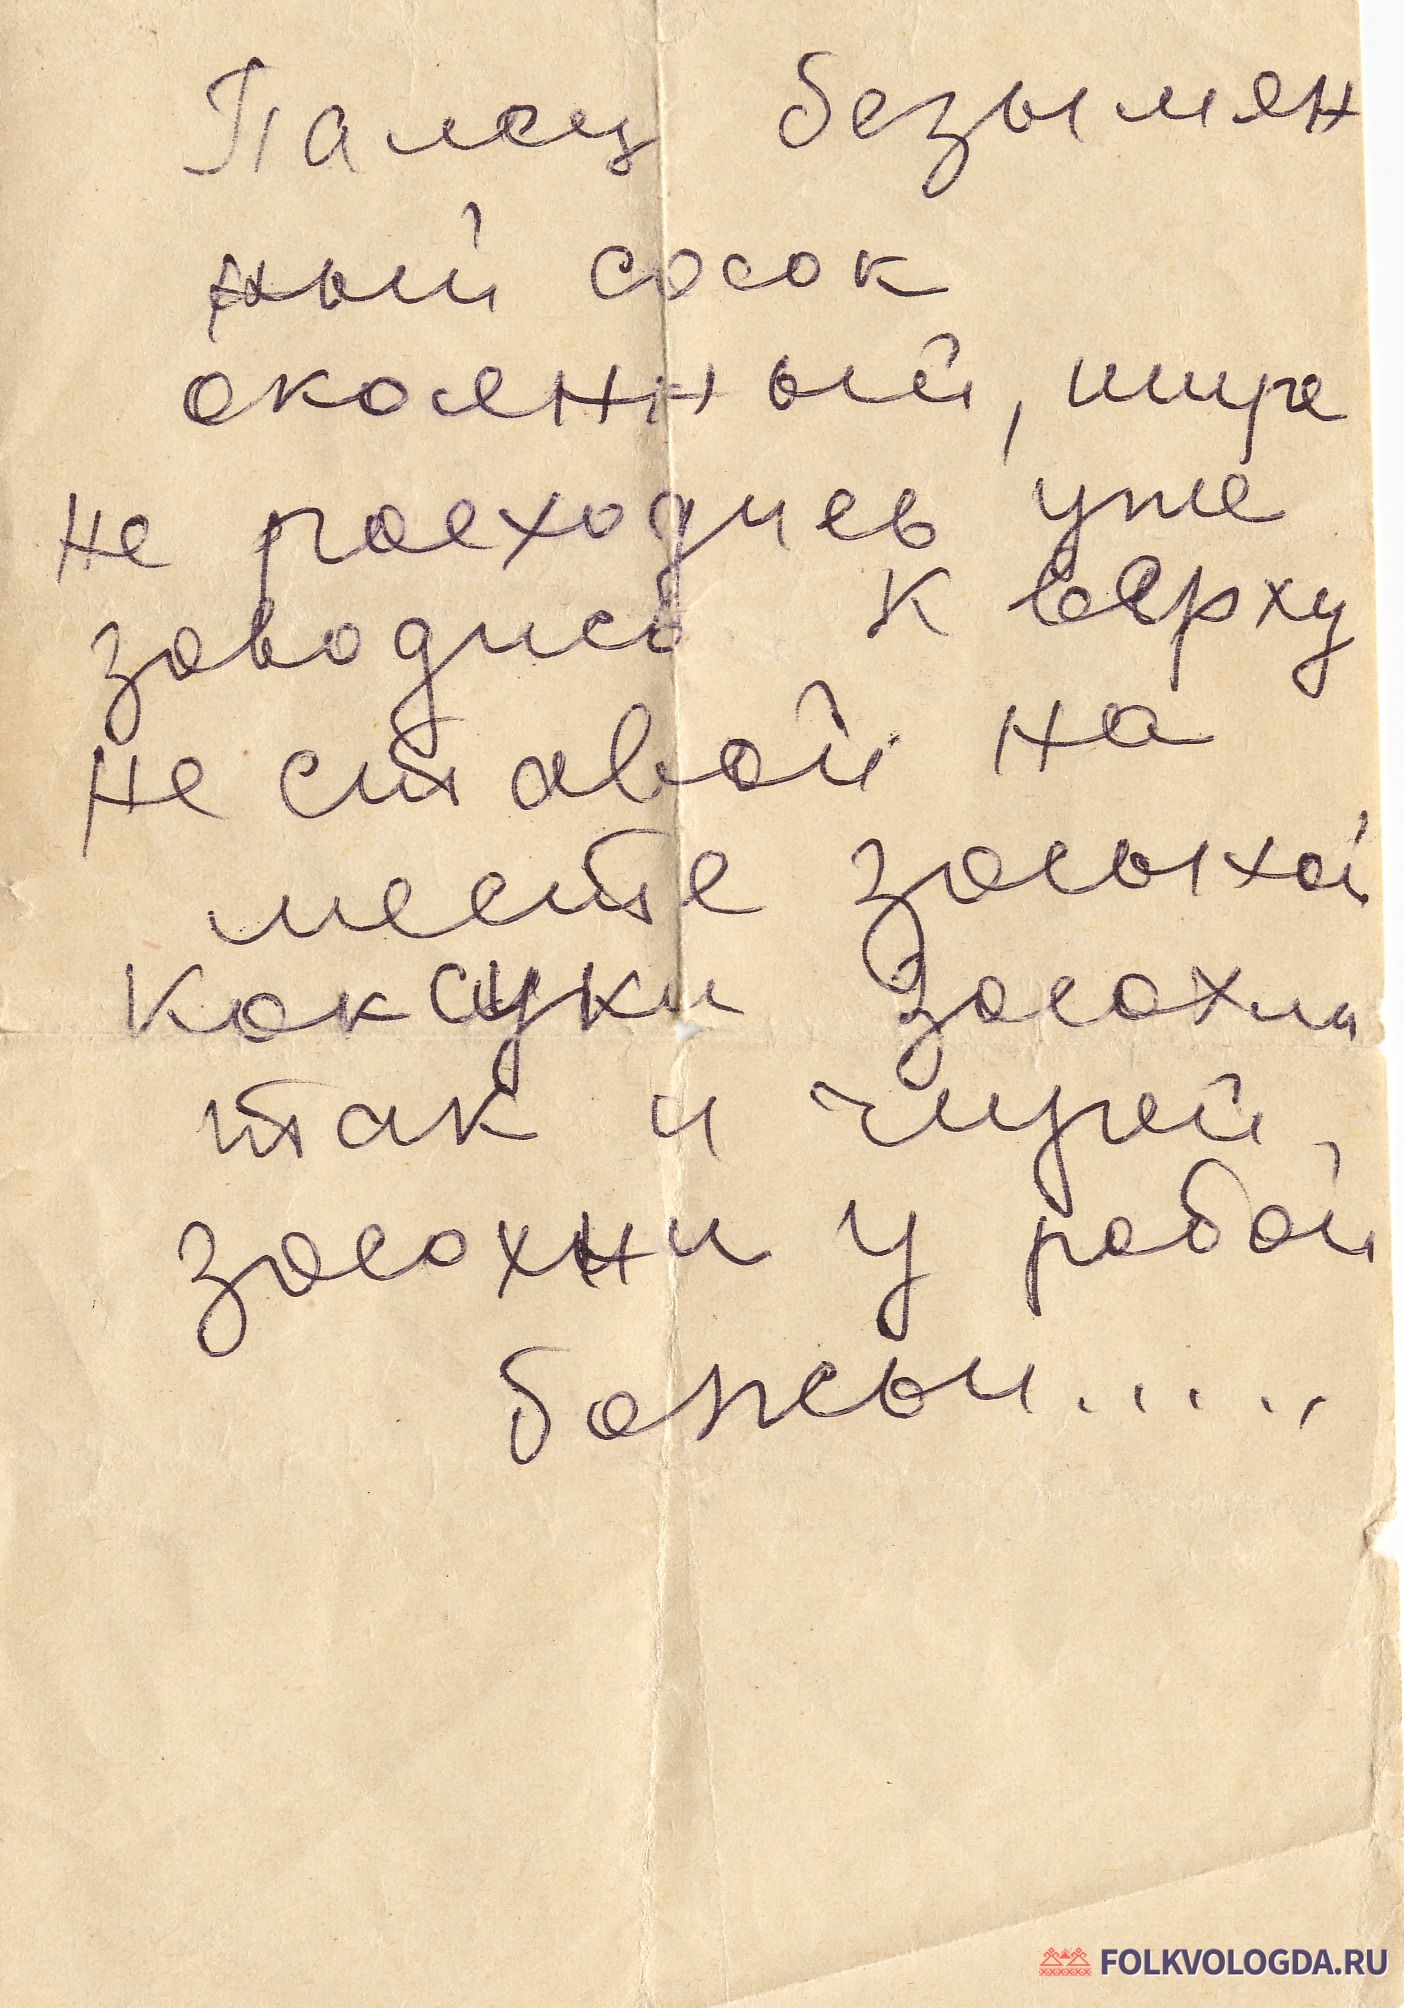 Палец безымян
ный сосок
окоянный, шире
не росходись уже
заводись к верху
не ставой на
месте засыхай
Как суки засохли
так и чирей,
засохни у рабой
божьи.....
FOLKVOLOGDA.RU